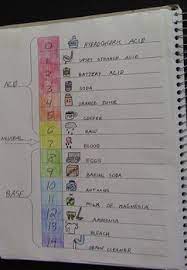 0 HYDROCHLORIC ACID
1 VERY STRONG ACID
2 BATTERY ACID
3 SODA
4 ORANGE JUICE
5 COFFEE
6 RAIN
7 BLOOD
8 EGGS
9 BAKING SODA
10 ANTACIDS
11 MILK OF MAGNESIA
12 AMMONIA
13 BLEACH
14 DRAIN CLEANER
ACID
NEUTRAL
BASE